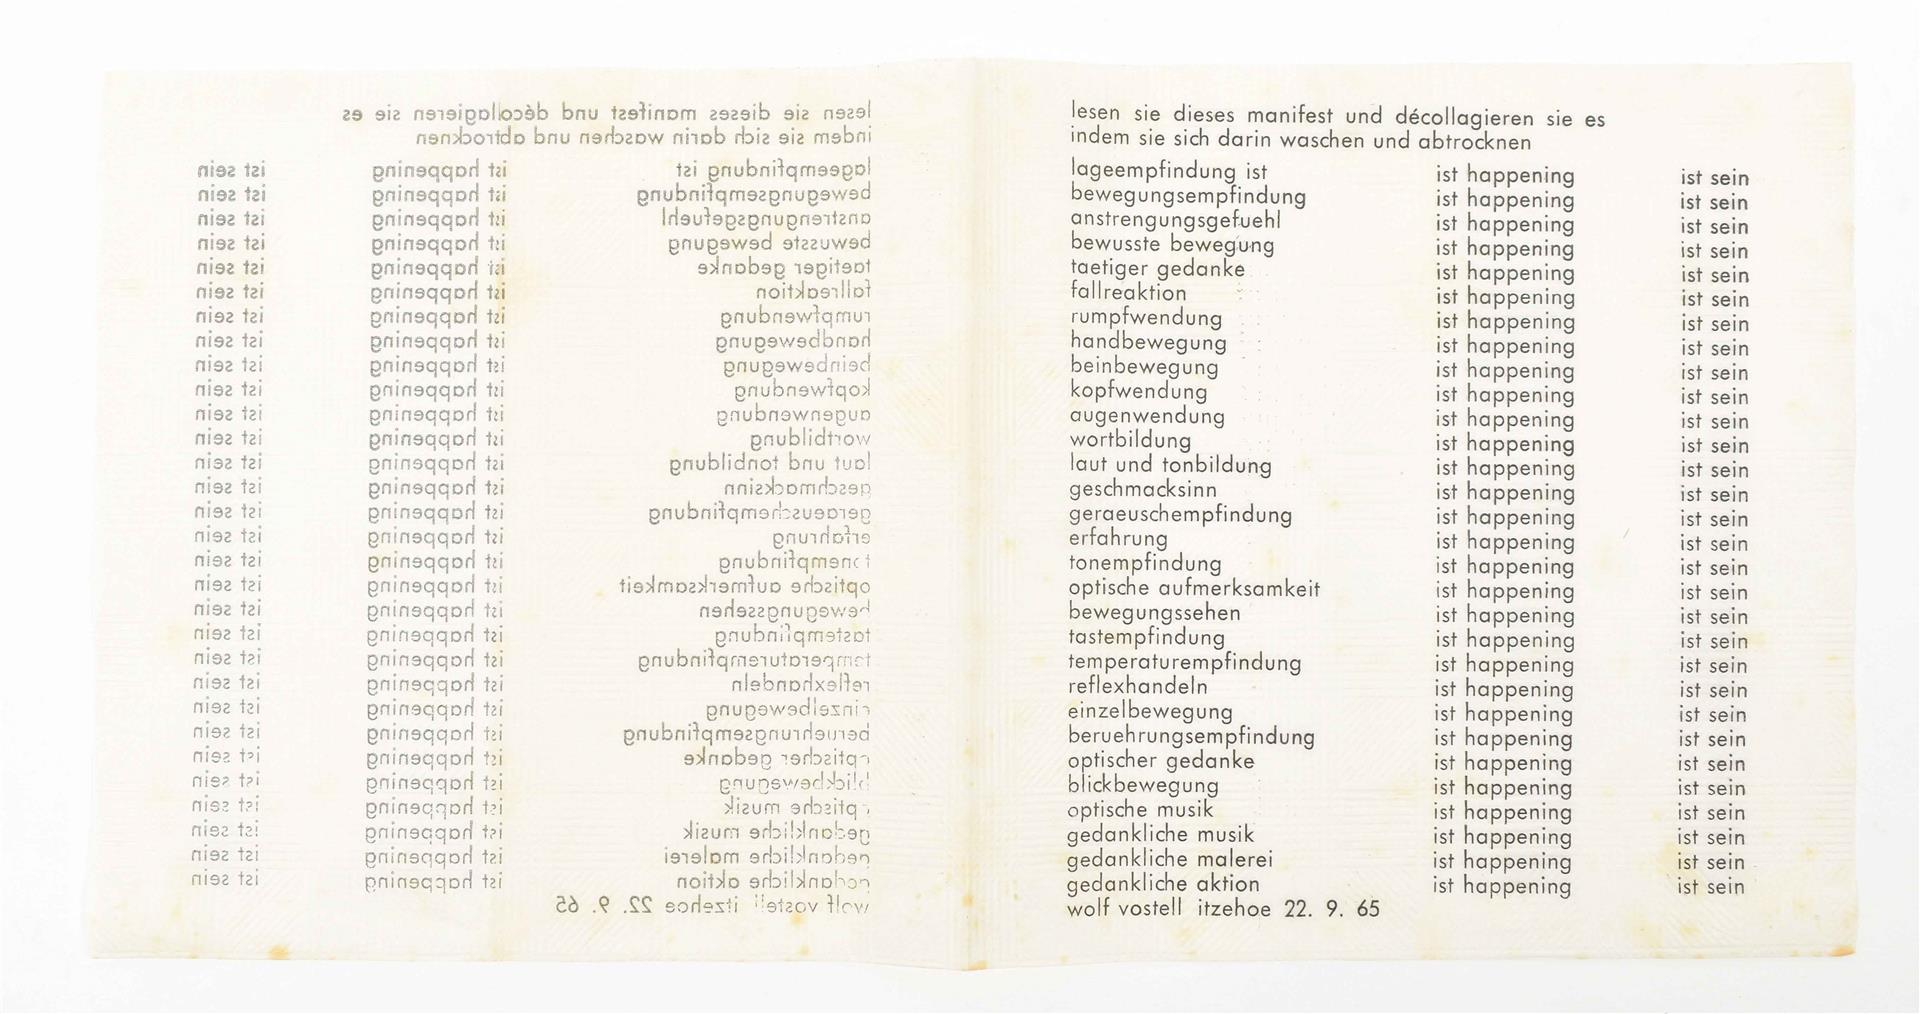 lesen sie dieses manifest und décollagieren sie es
indem sie sich darin waschen und abtrocknen
lageempfindung ist ist happening ist sein
bewegungsempfindung ist happening ist sein
anstrengungsgefuehl ist happening ist sein
bewusste bewegung ist happening ist sein
taetiger gedanke ist happening ist sein
fallreaktion ist happening ist sein
rumpfwendung ist happening ist sein
handbewegung ist happening ist sein
beinbewegung ist happening ist sein
kopfwendung ist happening ist sein
augenwendung ist happening ist sein
wortbildung ist happening ist sein
laut und tonbildung ist happening ist sein
geschmacksinn ist happening ist sein
geraeuschempfindung ist happening ist sein
erfahrung ist happening ist sein
tonempfindung ist happening ist sein
optische aufmerksamkeit ist happening ist sein
bewegungssehen ist happening ist sein
tastempfindung ist happening ist sein
temperaturempfindung ist happening ist sein
reflexhandeln ist happening ist sein
einzelbewegung ist happening ist sein
beruehrungsempfindung ist happening ist sein
optischer gedanke ist happening ist sein
blickbewegung ist happening ist sein
optische musik ist happening ist sein
gedankliche musik ist happening ist sein
gedankliche malerei ist happening ist sein
gedankliche aktion ist happening ist sein
wolf vostell itzehoe 22. 9. 65